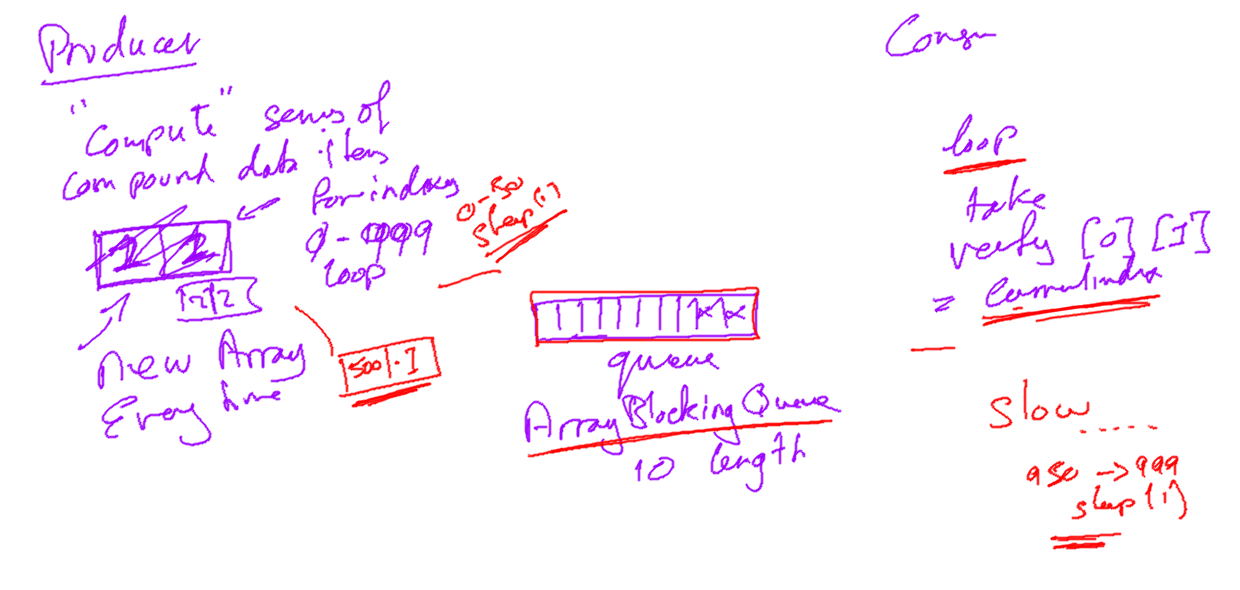 Producer
"Compute" series of
Compound data items
for indexes
0-999
loop
0-50
sleep(1)
1 2
2 2
new Array
Every time
500 -1
queue
ArrayBlockingQueue
10 length
Consu
loop
take
verify [0] [1]
= currentindex
slow
.....
950 -> 999
sleep(1)